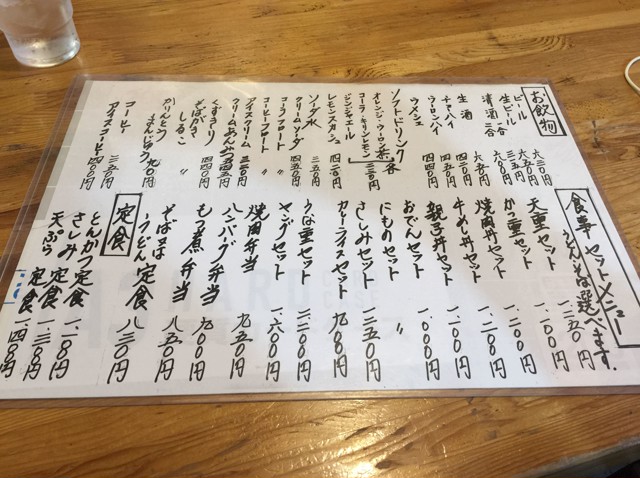 お飲物
ビール 六三〇円
生ビール 五五〇円
清酒 二合
生酒
チューハイ 四四〇円
ウーロンハイ 四四〇円
ウメシュ
ソフトドリンク
オレンジ・ウーロン茶
コーラ・キリンレモン 各三三〇円
ジンジャエール
レモンスカッシュ 四二〇円
ソーダ水 三五〇円
クリームソーダ
コーラフロート 〃
コーヒーフロート 〃
アイスクリーム 三三〇円
クリームあんみつ
くずきり
そばがき
しるこ 〃
かりんとうまんじゅう
コーヒー 三五〇円
アイスコーヒー 四四〇円
食事 セットメニュー
うどんそば選べます。
天重セット 一、二五〇円
かつ重セット 一、一〇〇円
焼肉丼セット 一、二〇〇円
牛めし丼セット 一、二〇〇円
親子丼セット 一、一〇〇円
おでんセット 一、〇〇〇円
にものセット 〃
さしみセット 一、三五〇円
カレーライスセット 九八〇円
うな重セット 二、二〇〇円
ヤングセット 一、六〇〇円
焼肉弁当 九五〇円
ハンバーグ弁当 九五〇円
もつ煮弁当 九〇〇円
定食
そば又はうどん定食 八五〇円
とんかつ定食
さしみ定食 一、三〇〇円
天ぷら定食 一、四〇〇円